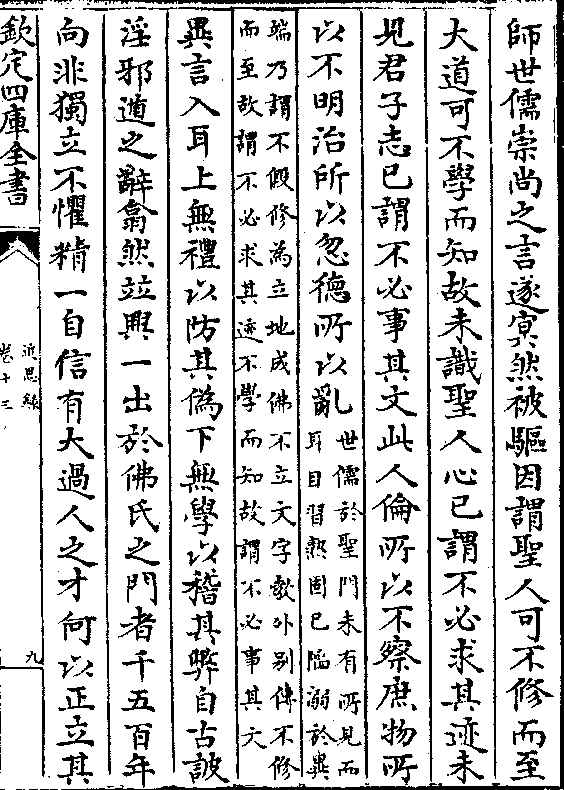 師世儒崇尚之言遂㝠然被驅因謂聖人可不修而至
大道可不學而知故未識聖人心已謂不必求其迹未
見君子志已謂不必事其文此人倫所以不察庶物所
以不明治所以忽德所以亂世儒於聖門未有所見而
耳目習熟固已陷溺於異
端乃謂不假修為立地成佛不立文字敎外别傳不修
而至故謂不必求其迹不學而知故謂不必事其文
異言入耳上無禮以防其偽下無學以稽其弊自古詖
淫邪遁之辭翕然並興一出於佛氏之門者千五百年
向非獨立不懼精一自信有大過人之才何以正立其
欽定四庫全書
近思錄
卷十三
九